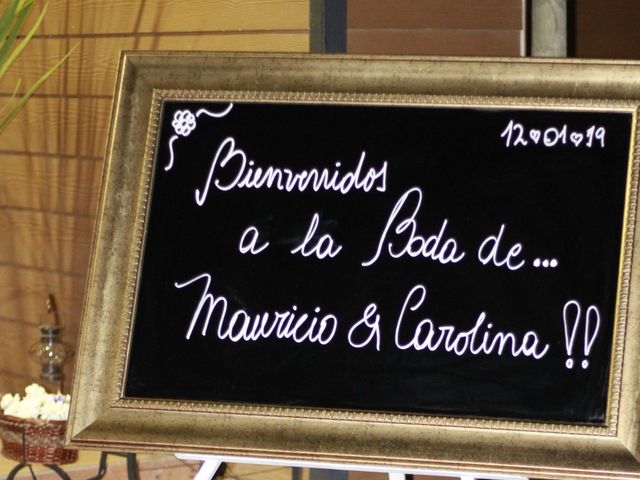 12♥01♥19
Bienvenidos
a la Boda de...
Mauricio & Carolina !!